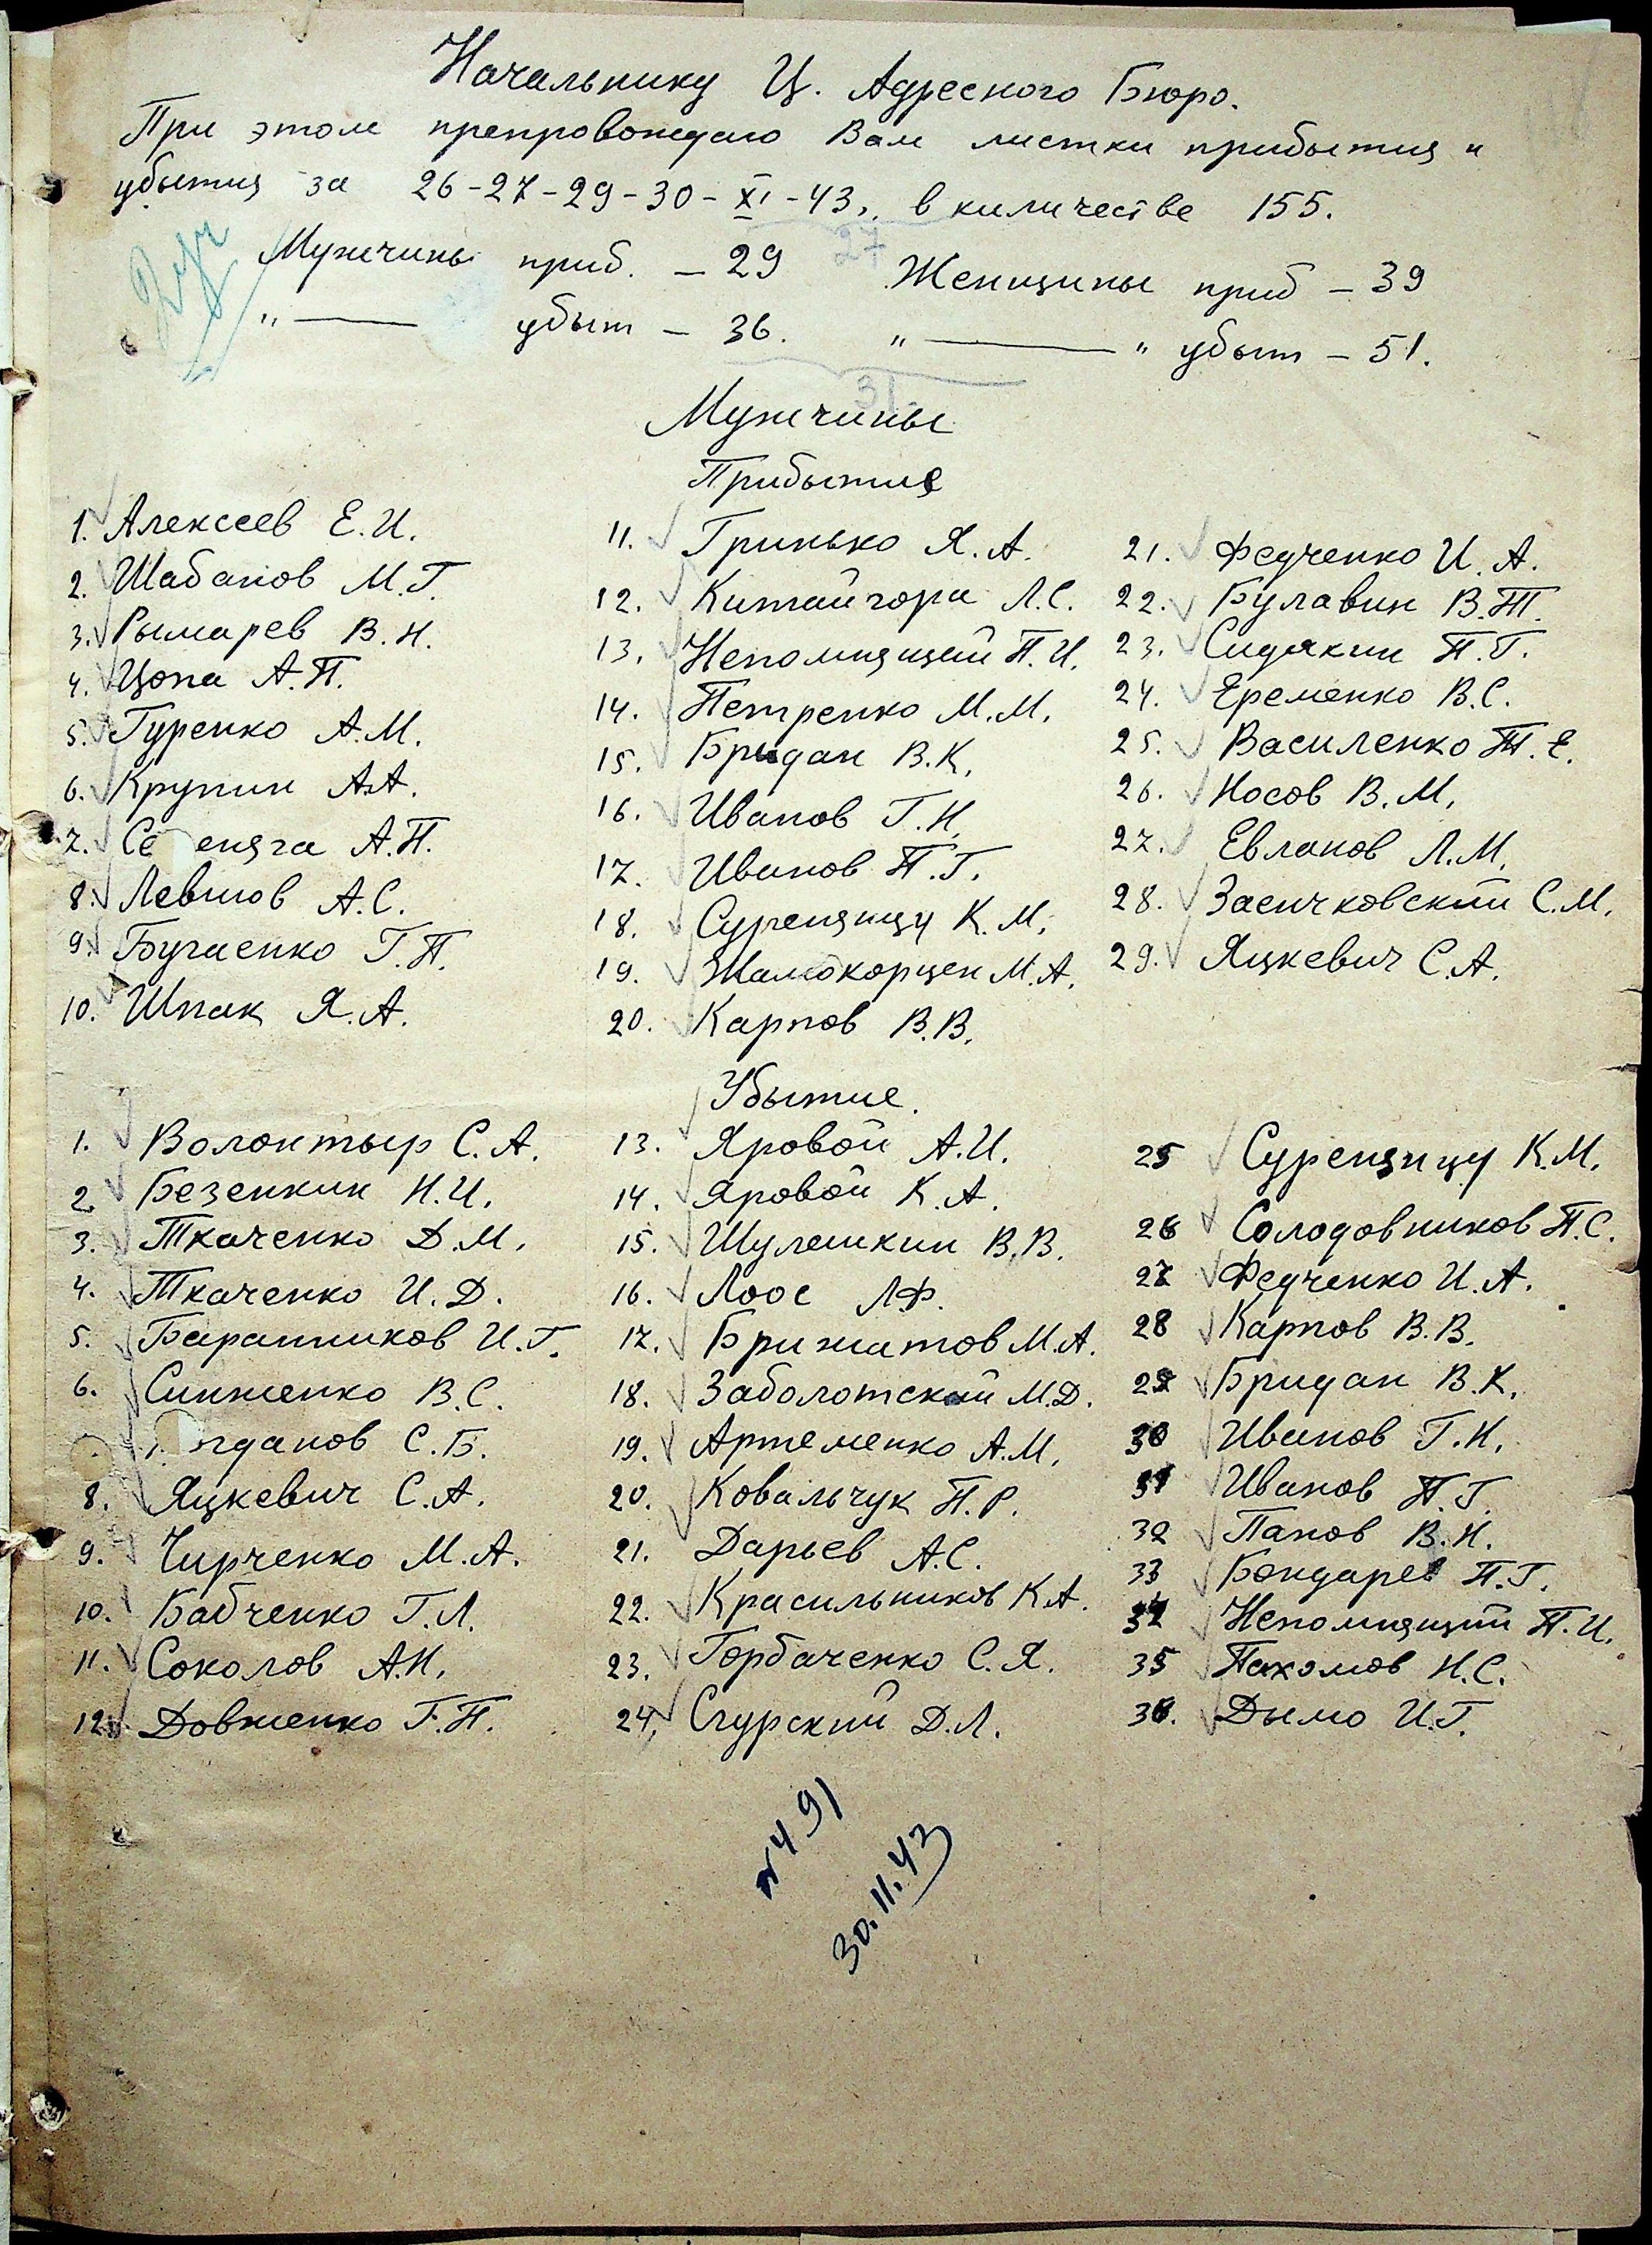 Начальнику Ц. Адресного Бюро.
При этом препровождаю Вам листки прибытия и
убытия за 26-27-29-30-XI-43, в киличестве 155.
Мужчины приб. - 29 Женщины приб - 39
27
"— убыт - 36. "—" убыт - 51.
31.
Мужчины
Прибытие
1. Алексеев Е.И.
2. Шабанов М.Г.
3. Рымарев В.Н.
4. Цопа А.П.
5. Гуренко А.М.
6. Крупин А.А.
7. Се еняга А.П.
8. Левшов А.С.
9. Бугаенко Г.П.
10. Шпак Я.А.
11. Гринько Я.А.
12. Китайгора Л.С.
13. Непомнящий П.И.
14. Петренко М.М.
15. Бридан В.К.
16. Иванов Г.Н.
17. Иванов П.Г.
18. Суренянцу К.М.
19. Жамокорцен М.А.
20. Карпов В.В.
21. Федченко И.А.
22. Булавин В.Т.
23. Сидякин П.Г.
24. Еременко В.С.
25. Василенко Т.Е.
26. Носов В.М.
27. Евланов Л.М.
28. Засичковский С.М.
29. Яцкевич С.А.
Убытие.
1. Волонтыр С.А.
2 Безенкин Н.И.
3. Ткаченко Д.М.
4. Ткаченко И.Д.
5. Баранников И.Г.
6. Синженко В.С.
гданов С.Б.
8. Яцкевич С.А.
9. Чирченко М.А.
10. Бабченко Г.Л.
11. Соколов А.Н.
12. Довженко Г.П.
13. Яровой А.И.
14. Яровой К.А.
15. Шулешкин В.В.
16. Лоос Л.Ф.
17. Брижатов М.А.
18. Заболотский М.Д.
19. Артеменко А.М.
20. Ковальчук П.Р.
21. Дарьев А.С.
22. Красильников К.А.
23. Горбаченко С.Я.
24. Сгурский Д.Л.
25 Суренянцу К.М.
26 Солодовников П.С.
27 Федченко И.А.
28 Карпов В.В.
29 Бридан В.К.
30 Иванов Г.Н.
31 Иванов П.Г.
32 Панов В.Н.
33 Бондарев П.Г.
34 Непомнящий П.И.
35 Пахомов Н.С.
36. Дымо И.Г.
№491
30.11.43